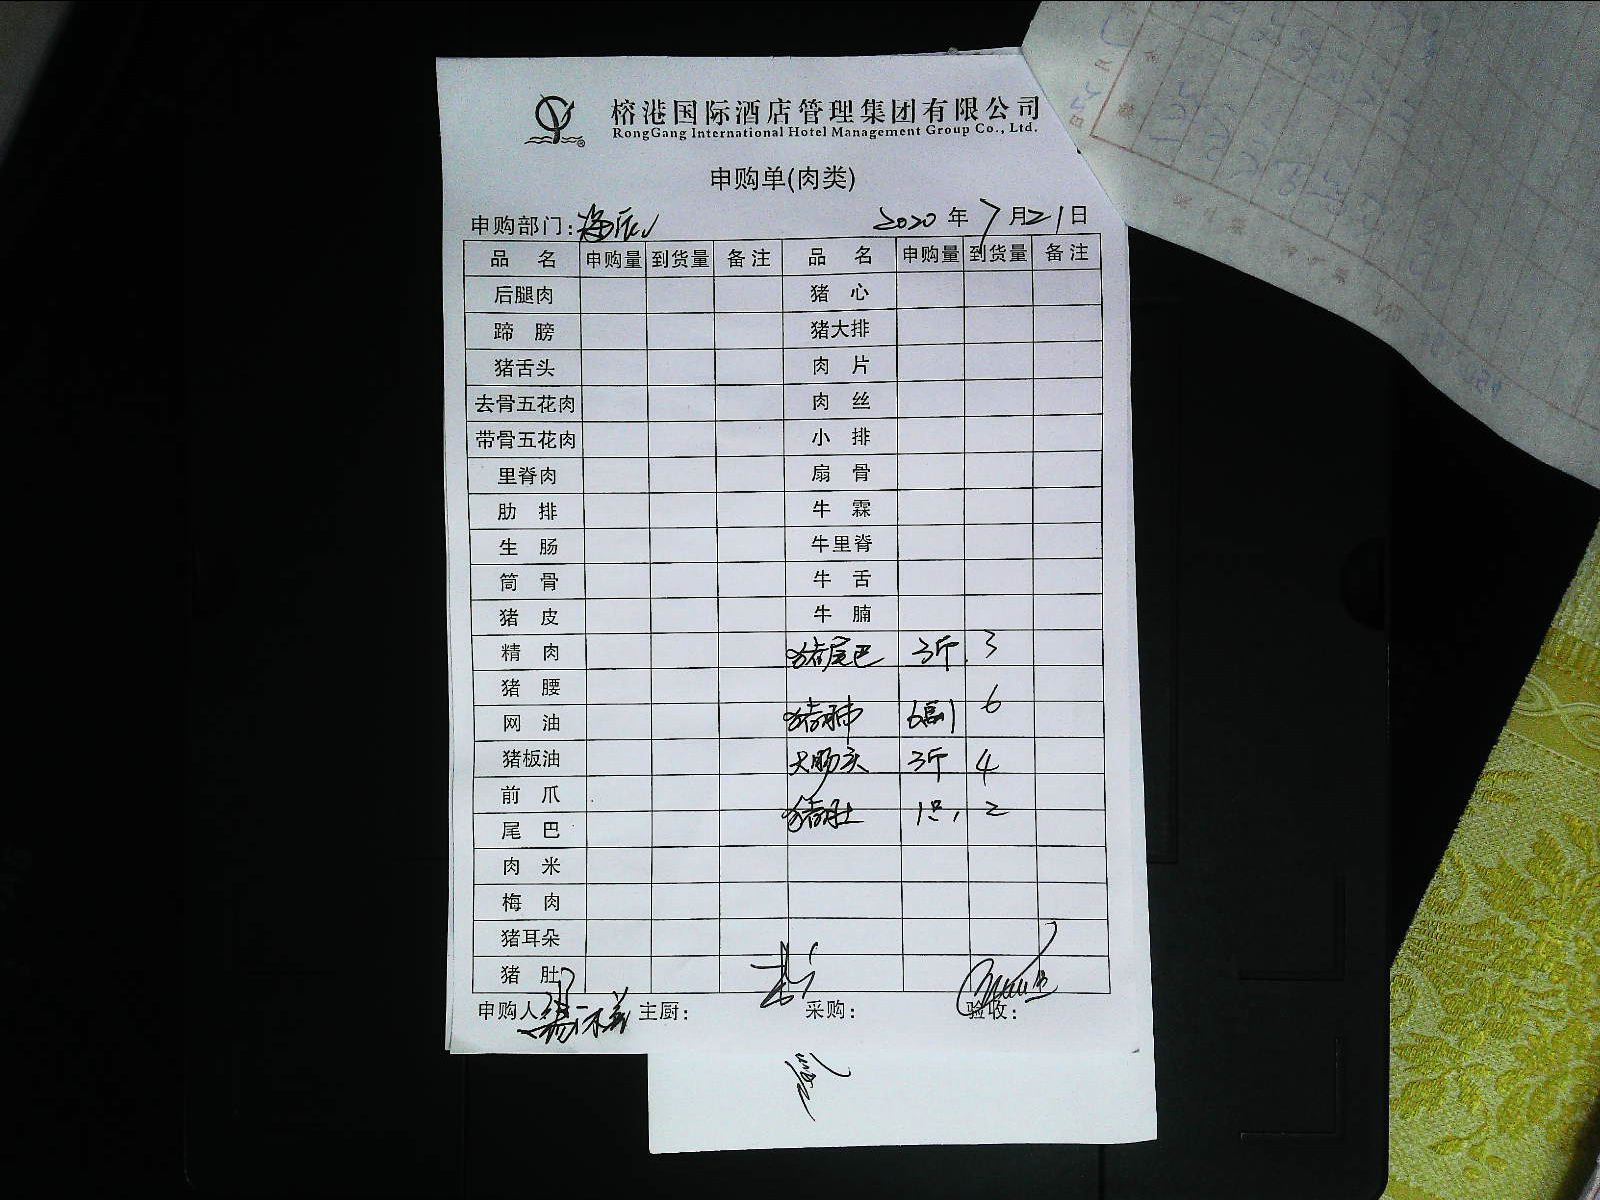 榕港国际酒店管理集团有限公司
RongGang International Hotel Management Group Co., Ltd.
申购单(肉类)
申购部门: 2020 年 7 月 21 日
品 名 申购量 到货量 备注 品 名 申购量 到货量 备注
后腿肉 猪 心
蹄 膀 猪大排
猪舌头 肉 片
去骨五花肉 肉 丝
带骨五花肉 小 排
里脊肉 扇 骨
肋 排 牛 霖
生 肠 牛里脊
筒 骨 牛 舌
猪 皮 牛 腩
精 肉 猪尾巴 3斤 3
猪 腰
网 油 猪肺 6副 6
猪板油 大肠头 3斤 4
前 爪
尾 巴 猪肚 1只 2
肉 米
梅 肉
猪耳朵
猪 肚
申购人 主厨: 采购: 验收: